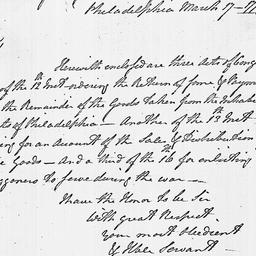 Philadelphia March 17-
Herewith enclosed are three Acts of Cong
of the 12th Inst- ordering the Return of some & Paym
the Remainder of the Goods taken from the Inhabi
ts of Philadelphia - Another of the 13th Inst -
ing for an account of the Sales & Distribution
e Goods - And a third of the 16 for enlisting
aggoners to serve during the war -
I have the Honor to be Sir
with great Respect
your most obedient
& Hble Servant -